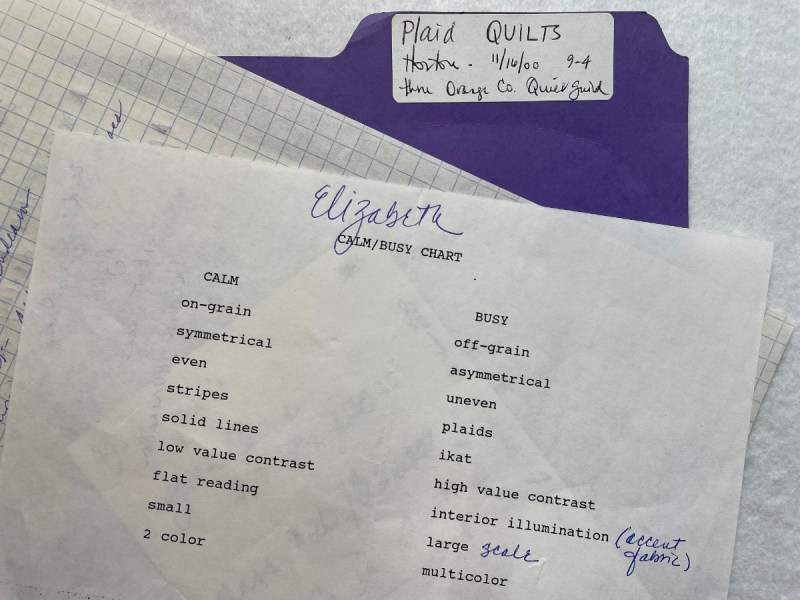 Plaid QUILTS
Horton - 11/16/00 9-4
thru Orange Co. Quilt Guild
Elizabeth
CALM/BUSY CHART
CALM
on-grain
symmetrical
even
stripes
solid lines
low value contrast
flat reading
small
2 color
BUSY
off-grain
asymmetrical
uneven
plaids
ikat
high value contrast
interior illumination (accent
fabric)
large scale
multicolor